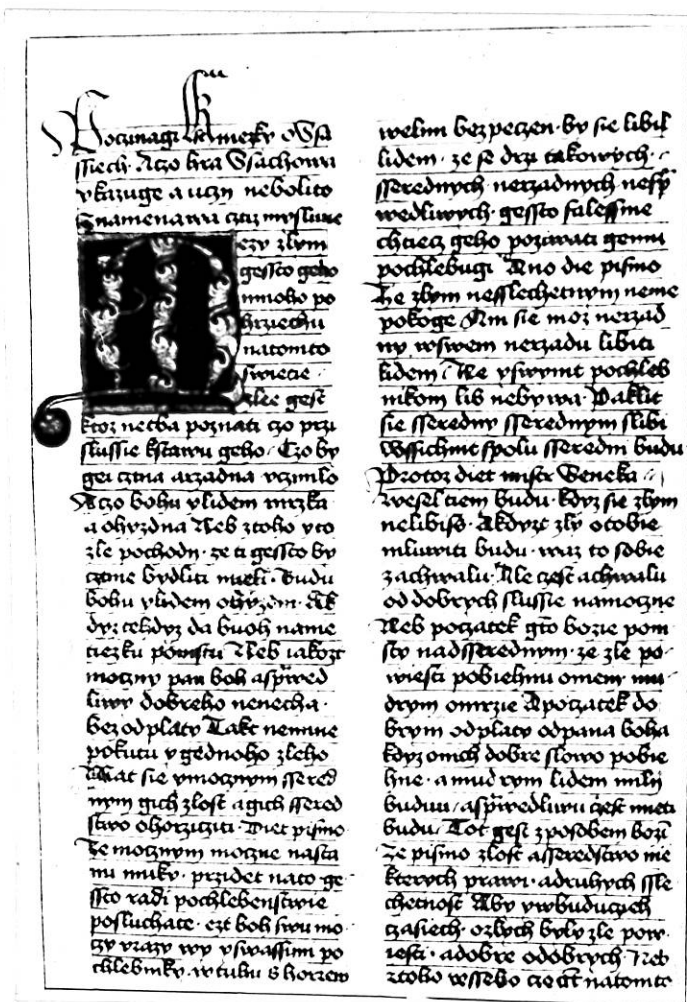 Poczinagi se kniezky o Ssa
ssiech Aczo hra Ssachowa
vkazuge a uczy nebolito
Znamenawa cztiz mysliwe
ezy zlym
gessto geho
mnoho po
hrziechu
natomto
swiecie
zlee gest
ktoz necba poznati czo przi
slussie kstawu geho Czo by
gei cztna arzadna vczinilo
Aczo bohu ylidem mrzka
a ohyzdna Neb ztoho yto
zle pochodi ze ti gessto by
cztne bydliti mieli Budu
bohu ylidem ohyzdni Ak
dyz tehdyz da buoh name
tiezku pomstu Neb iakozt
moczny pan boh aspraved
liwy dobreho nenecha
bez odplaty Takt nemine
pokutu ygednoho zleho
Mat sie ymocznym ssered
nym gich zlost agich ssered
stwo ohorzcziti Diet pismo
Ze mocznym moczne nasta
nu muky przidet nato ge
ssto radi pochlebenstwie
posluchate ezt boh swu mo
czy vrazy wy yswassimi po
chlebniky wtubu s horzem
welmi bezpeczen by sie libil
lidem ze se drzi takowych
sserednych nerzadnych nesp
wedliwych gessto falessnie
chtiecz geho poziwati gemu
pochlebugi Ano die pismo
Ze zlym nesslechetnym neme
pokoge Am sie moz nerzad
ny wswem nerzadu libiti
lidem Ale yswymi pochleb
nikom lib nebywa Paklit
sie sseredny sserednym slibi
Wssichnit spolu sseredni budu
Protoz diet mistr Seneka
Wesel tiem budu kdyz sie zlym
nelibiss Akdyzt zly otobie
mluwiti budu maz to sobie
zachwalu Ale czest achwalu
od dobrych slussie namoczne
Neb poczatek gto bozie pom
sty nadsserednym ze zle po
wiesti pobiehnu omem mu
drym omrzie Apoczatek do
brym odplaty odpana boha
kdyz onich dobre slowo pobie
hne amudrym lidem mili
budu asprwedliwu czest mieti
budu Tot gest zposobem bozim
Ze pismo zlost assered​stwo nie
kterych prawi adruhych ssle
chetnost Aby ywbuduczych
czasiech ozlych byly zle pow
iesti adobre odobrych Neb
ztoho wsseho czo gt natomto